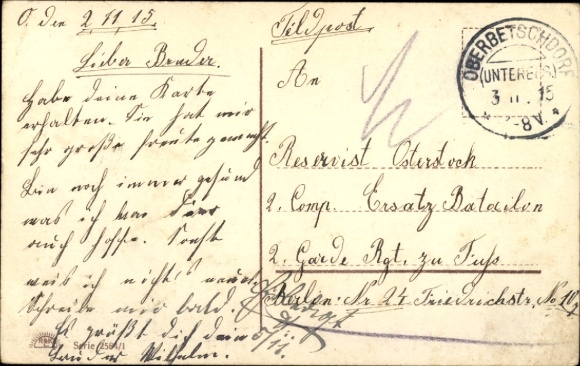 O. den 2.11.15.
Lieber Bruder.
Habe deine Karte
erhalten. Sie hat mir
sehr große Freude gemacht.
Bin noch immer gesund
was ich von
auch hoffe. Sonst
weis ich nichts neues.
Schreibe mir bald.
Es grüßt dich dein
Bruder Wilhelm.
Serie 2584/1
Feldpost
An
Reservist Osterstock
2. Comp. Ersatz Batailon
2. Garde Rgt. zu Fuss
Berlin: Nr. 24 Friedrichstr. No
OBERBETSCHDORF
(UNTERELS.)
3 11. 15
-8V.